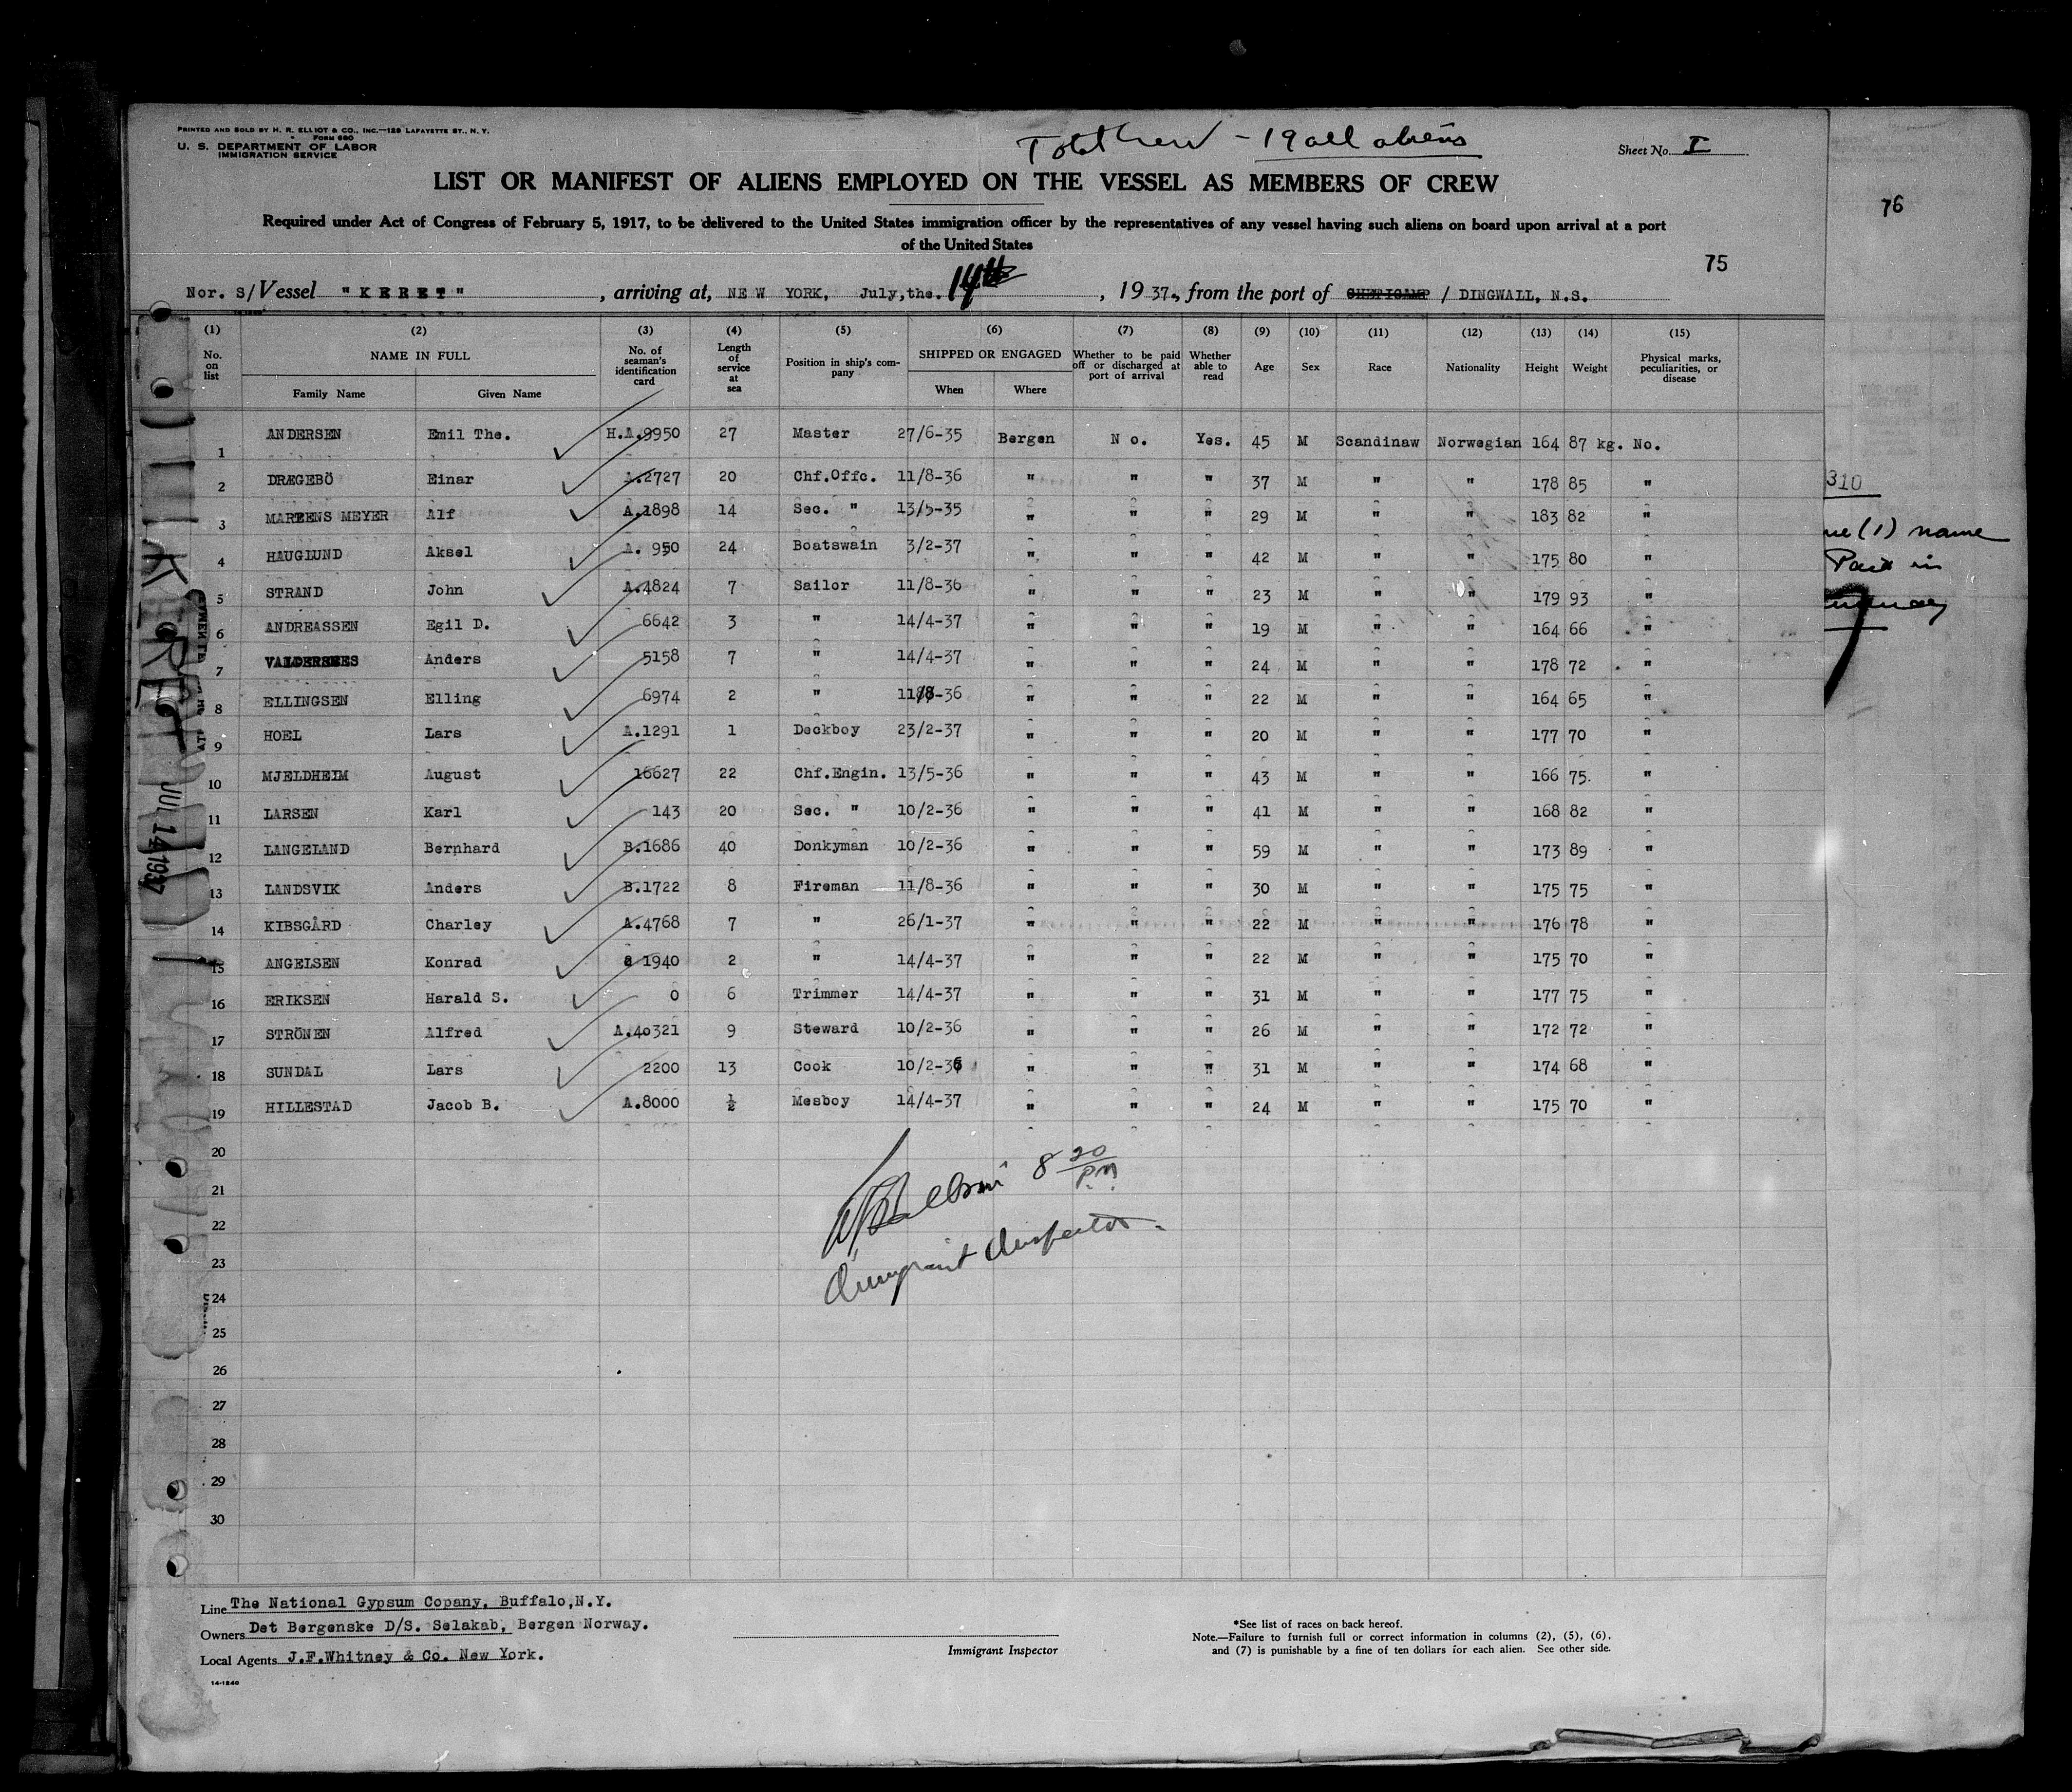 PRINTED AND SOLD BY H. R. ELLIOT & CO., INC.—129 LAFAYETTE ST., N. Y.
FORM 680
U. S. DEPARTMENT OF LABOR
IMMIGRATION SERVICE
Total Crew - 19 all aliens
Sheet No. I
LIST OR MANIFEST OF ALIENS EMPLOYED ON THE VESSEL AS MEMBERS OF CREW
Required under Act of Congress of February 5, 1917, to be delivered to the United States immigration officer by the representatives of any vessel having such aliens on board upon arrival at a port
of the United States
76
75
Nor. S/ Vessel "KERET", arriving at, NEW YORK, July, the. 14th, 1937., from the port of / DINGWALL, N.S.
(1) (2) (3) (4) (5) (6) (7) (8) (9) (10) (11) (12) (13) (14) (15)
No. on list NAME IN FULL Family Name Given Name No. of seaman's identification card Length of service at sea Position in ship's company SHIPPED OR ENGAGED When Where Whether to be paid off or discharged at port of arrival Whether able to read Age Sex Race Nationality Height Weight Physical marks, peculiarities, or disease
1 ANDERSEN Emil The. H.A.9950 27 Master 27/6-35 Bergen No. Yes. 45 M Scandinaw Norwegian 164 87 kg. No.
2 DRÆGEBÖ Einar A.2727 20 Chf.Offc. 11/8-36 " " " 37 M " " 178 85 "
3 MARTENS MEYER Alf A.1898 14 Sec. " 13/5-35 " " " 29 M " " 183 82 "
4 HAUGLUND Aksel A. 950 24 Boatswain 3/2-37 " " " 42 M " " 175 80 "
5 STRAND John A.4824 7 Sailor 11/8-36 " " " 23 M " " 179 93 "
6 ANDREASSEN Egil D. 6642 3 " 14/4-37 " " " 19 M " " 164 66 "
7 Anders 5158 7 " 14/4-37 " " " 24 M " " 178 72 "
8 ELLINGSEN Elling 6974 2 " 11/8-36 " " " 22 M " " 164 65 "
9 HOEL Lars A.1291 1 Deckboy 23/2-37 " " " 20 M " " 177 70 "
10 MJELDHEIM August 16627 22 Chf.Engin. 13/5-36 " " " 43 M " " 166 75. "
11 LARSEN Karl 143 20 Sec. " 10/2-36 " " " 41 M " " 168 82 "
12 LANGELAND Bernhard B.1686 40 Donkyman 10/2-36 " " " 59 M " " 173 89 "
13 LANDSVIK Anders B.1722 8 Fireman 11/8-36 " " " 30 M " " 175 75 "
14 KIBSGÅRD Charley A.4768 7 " 26/1-37 " " " 22 M " " 176 78 "
15 ANGELSEN Konrad 1940 2 " 14/4-37 " " " 22 M " " 175 70 "
16 ERIKSEN Harald S. 0 6 Trimmer 14/4-37 " " " 31 M " " 177 75 "
17 STRÖNEN Alfred A.40321 9 Steward 10/2-36 " " " 26 M " " 172 72 "
18 SUNDAL Lars 2200 13 Cook 10/2-36 " " " 31 M " " 174 68 "
19 HILLESTAD Jacob B. A.8000 ½ Mesboy 14/4-37 " " " 24 M " " 175 70 "
20
21
22
23
24
25
26
27
28
29
30
8 20 P.M.
Immigrant Inspector.
KERET
JUL 14 1937
310
(1) name
in
Line The National Gypsum Copany, Buffalo,N.Y.
Owners Det Bergenske D/S. Selakab, Bergen Norway.
Local Agents J.F.Whitney & Co. New York.
14-1240
Immigrant Inspector
*See list of races on back hereof.
Note.—Failure to furnish full or correct information in columns (2), (5), (6),
and (7) is punishable by a fine of ten dollars for each alien. See other side.